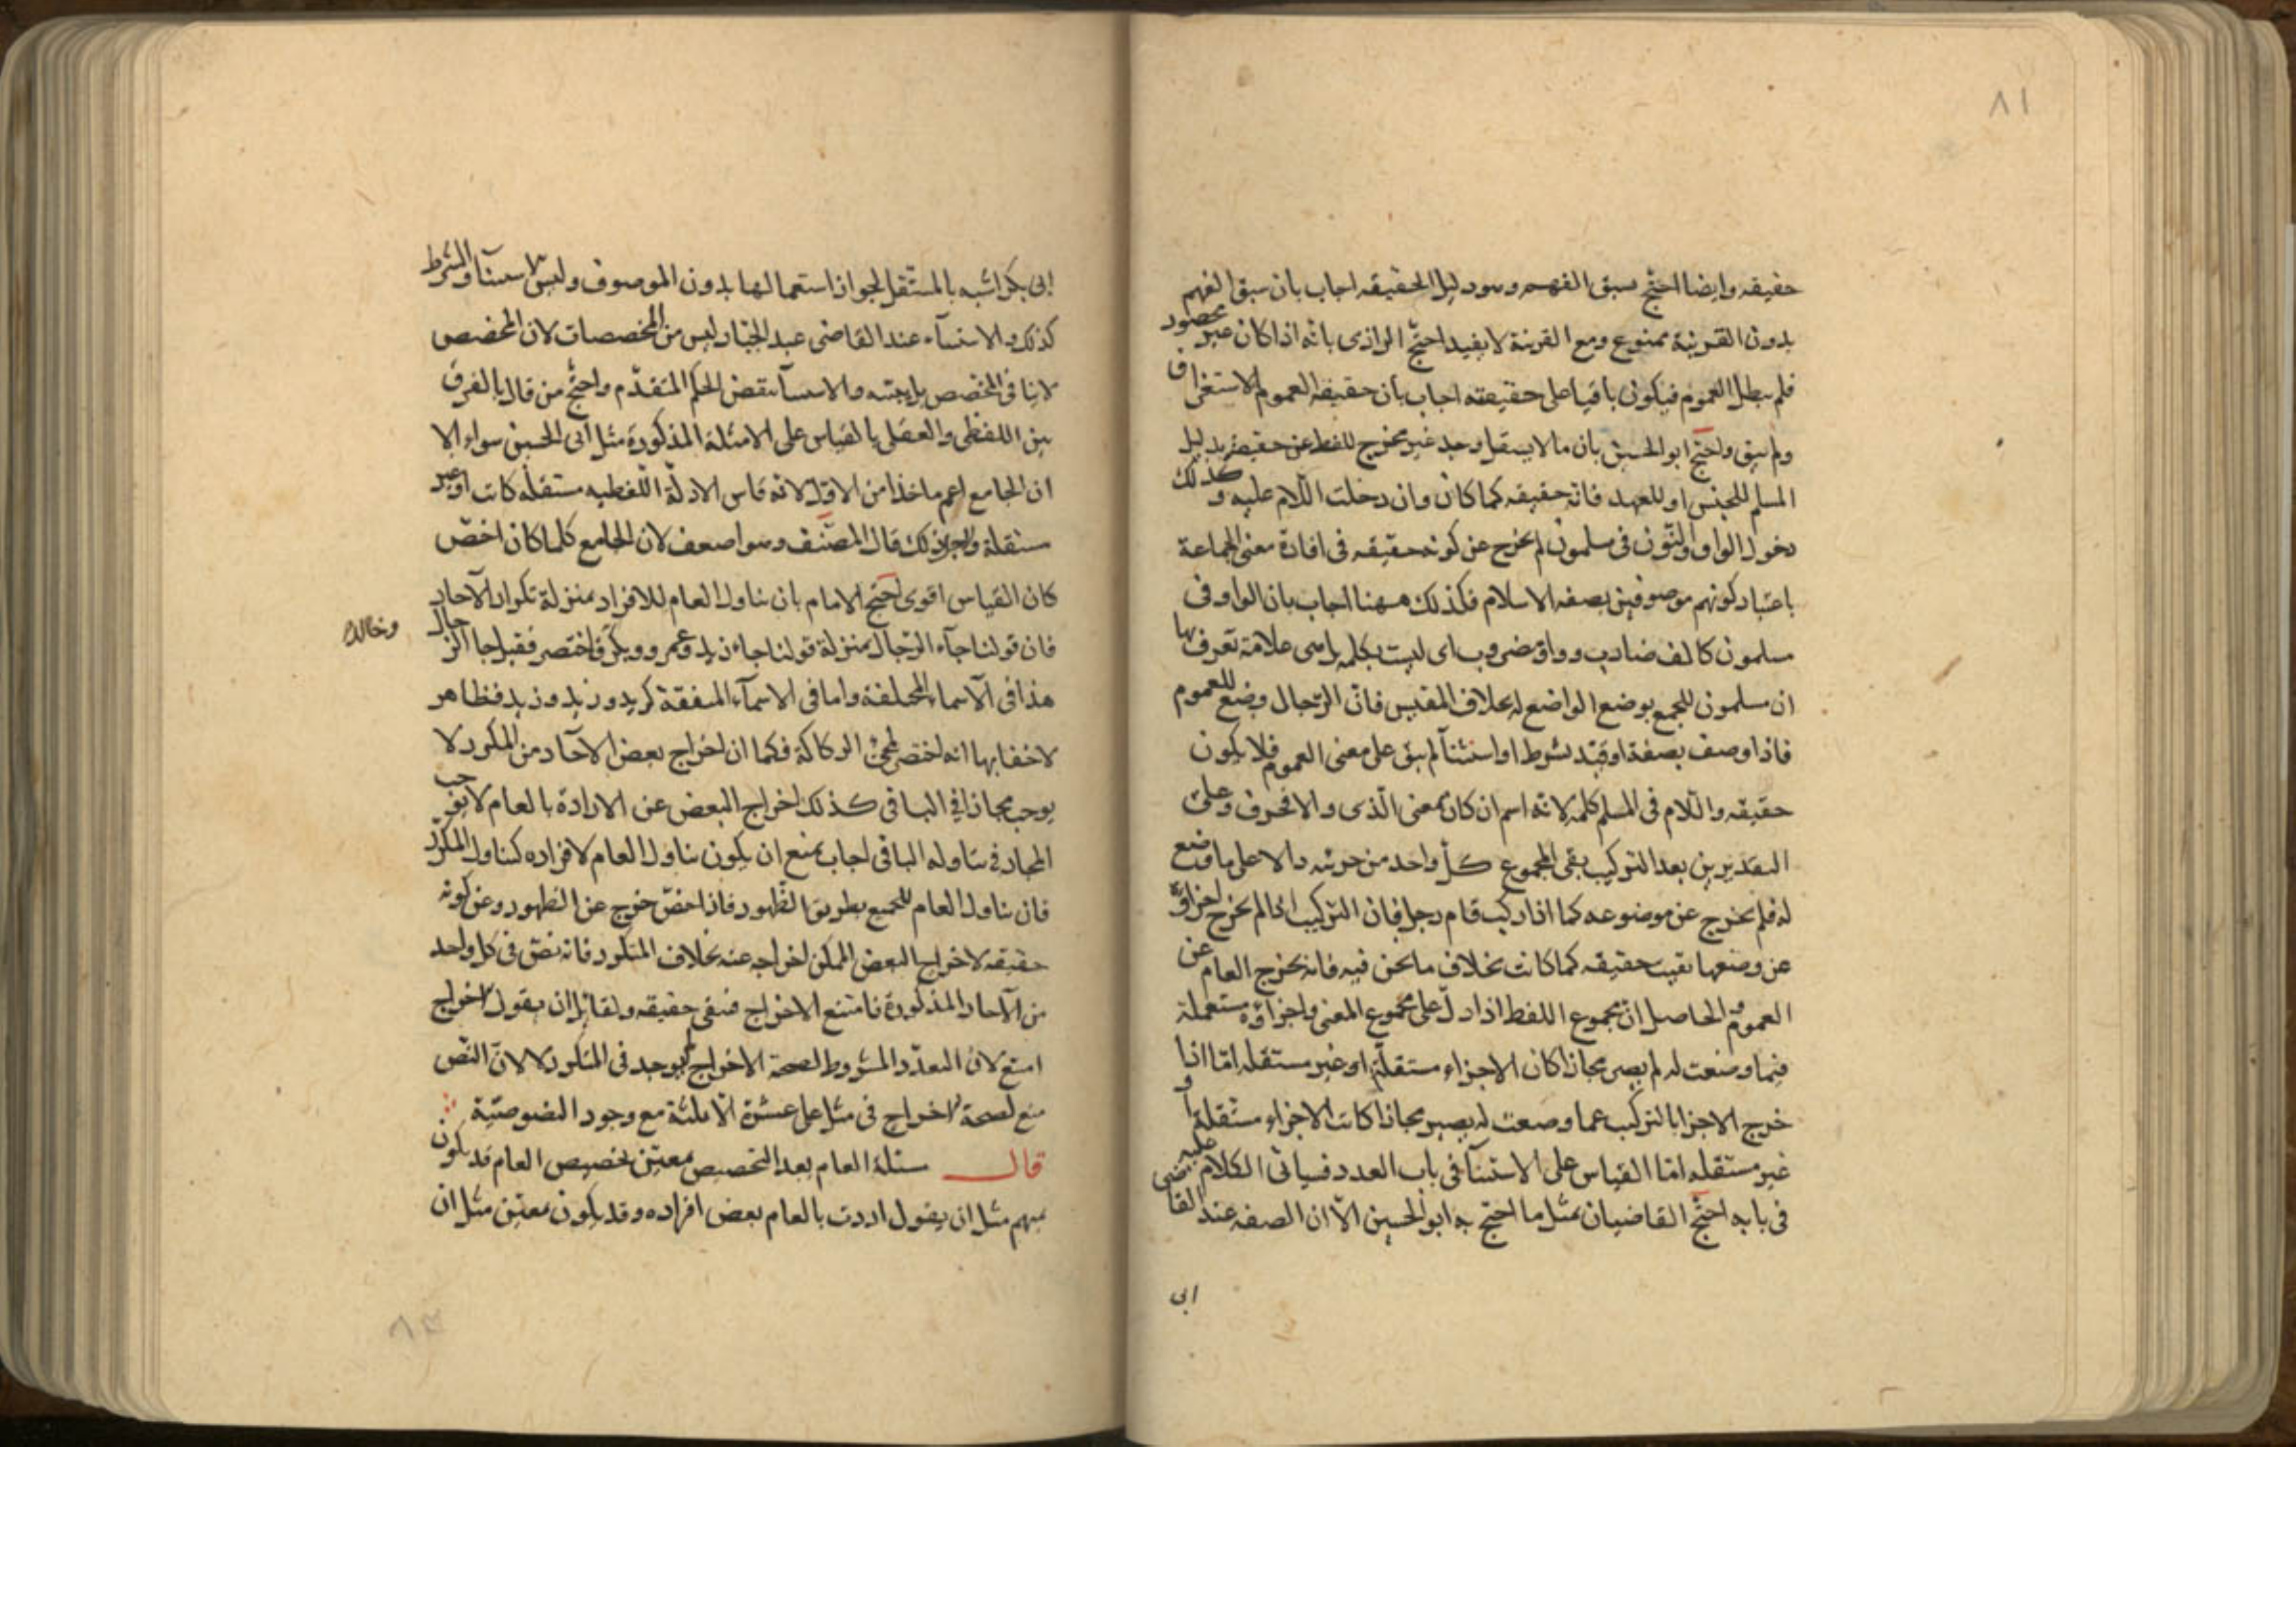 ٨١
حقيقه وايضا احتج بسبق الفهم وهو دليل الحقيقه اجاب بان سبق الفهم
بدون القرينة ممنوع ومع القرينة لا يفيد احتج الرازى بانه اذا كان غير محصور
فلم يبطل العموم فيكون باقيا على حقيقته اجاب بان حقيقة العموم الاستغراق
ولم يبق واحتج ابو الحسين بان ما لا يستقل وحده غير مخرج للفظ عن حقيقته بدليل
المسلم للجنس او للعهد فانه حقيقه كما كان وان دخلت اللام عليه وكذلك
دخول الواو والنون فى مسلمون لم يخرج عن كونه حقيقه فى افادة معنى الجماعة
باعتبار كونهم موصوفين بصفه الاسلام فكذلك ههنا اجاب بان الواو فى
مسلمون كالف ضارب وواو مضروب اى ليست بكلمه بل هى علامة تعرف بها
ان مسلمون للجمع بوضع الواضع له بخلاف المقيس فان الرجال وضع للعموم
فاذا وصف بصفة او قيد بشرط او استثنآ لم يبق على معنى العموم فلا يكون
حقيقه واللام فى المسلم كلمه لانه اسم ان كان بمعنى الذى والا فحرف وعلى
التقديرين بعد التركيب بقى المجموع كل واحد من جزئيه دالا على ما وضع
له فلم يخرج عن موضوعه كما اذا ركب قام رجل فان التركيب لما لم يخرج اجزاؤه
عن وضعها بقيت حقيقه كما كانت بخلاف ما نحن فيه فانه يخرج العام عن
العموم والحاصل ان مجموع اللفظ اذا دل على مجموع المعنى واجزاؤه مستعملة
فيما وضعت له لم يصر مجازا كان الاجزاء مستقلة او غير مستقله اما اذا
خرج الاجزا بالتركيب عما وضعت له يصير مجازا كانت الاجزاء مستقلة او
غير مستقله اما القياس على الاستثنآ فى باب العدد فسيأتى الكلام عليه
فى بابه احتج القاضيان بمثل ما احتج به ابو الحسين الا ان الصفه عند القاضى
ابى
ابى بكر اشبه بالمستقل لجواز استعمالها بدون الموصوف وليس الاستثنآ والشرط
كذلك والاستثنآء عند القاضى عبد الجبار ليس من المخصصات لان المخصص
لا ينافى المخصص بل يبينه والاستثنآ ينقض الحكم المتقدم واحتج من قال بالفرق
بين اللفظى والعقلى بالقياس على الامثلة المذكورة مثل ابى الحسين سواء الا
ان الجامع اعم ماخذا من الاول لانه قاس الادلة اللفظيه مستقله كانت او غير
مستقلة ولذلك قال المصنف وهو اضعف لان الجامع كلما كان اخص
كان القياس اقوى احتج الامام بان تناول العام للافراد بمنزلة تكرار الآحاد
فان قولنا جآء الرجال بمنزلة قولنا جاء زيد وعمرو وبكر فاختصر فقيل جا الرجال
وخالد
هذا فى الآسماء المختلفة واما فى الاسمآء المتفقة كزيد وزيد وزيد فظاهر
لا خفا بها انه اختصر لمحو الركاكة فكما ان اخراج بعض الآحاد من المكرر لا
يوجب مجازا فى الباقى كذلك اخراج البعض عن الارادة بالعام لا يوجب
المجاز فى تناوله الباقى اجاب بمنع ان يكون تناول العام لافراده كتناول المكرر
فان تناول العام للجميع بطريق الظهور فاذا خص خرج عن الظهور وعن كونه
حقيقه لاخراج البعض الممكن اخراجه عنه بخلاف المتكرر فانه نص فى كل واحد
من الآحاد المذكورة فامتنع الاخراج فبقى حقيقه ولقائل ان يقول الاخراج
امتنع لان التعدد المشروط لصحة الاخراج لم يوجد فى المتكرر لا لان النص
منع لصحة الاخراج فى مثل على عشرة الا ثلثة مع وجود النصوصية
قال مسئلة العام بعد التخصيص بمعين تخصيص العام قد يكون
بمبهم مثل ان يقول اردت بالعام بعض افراده وقد يكون بمعين مثل ان